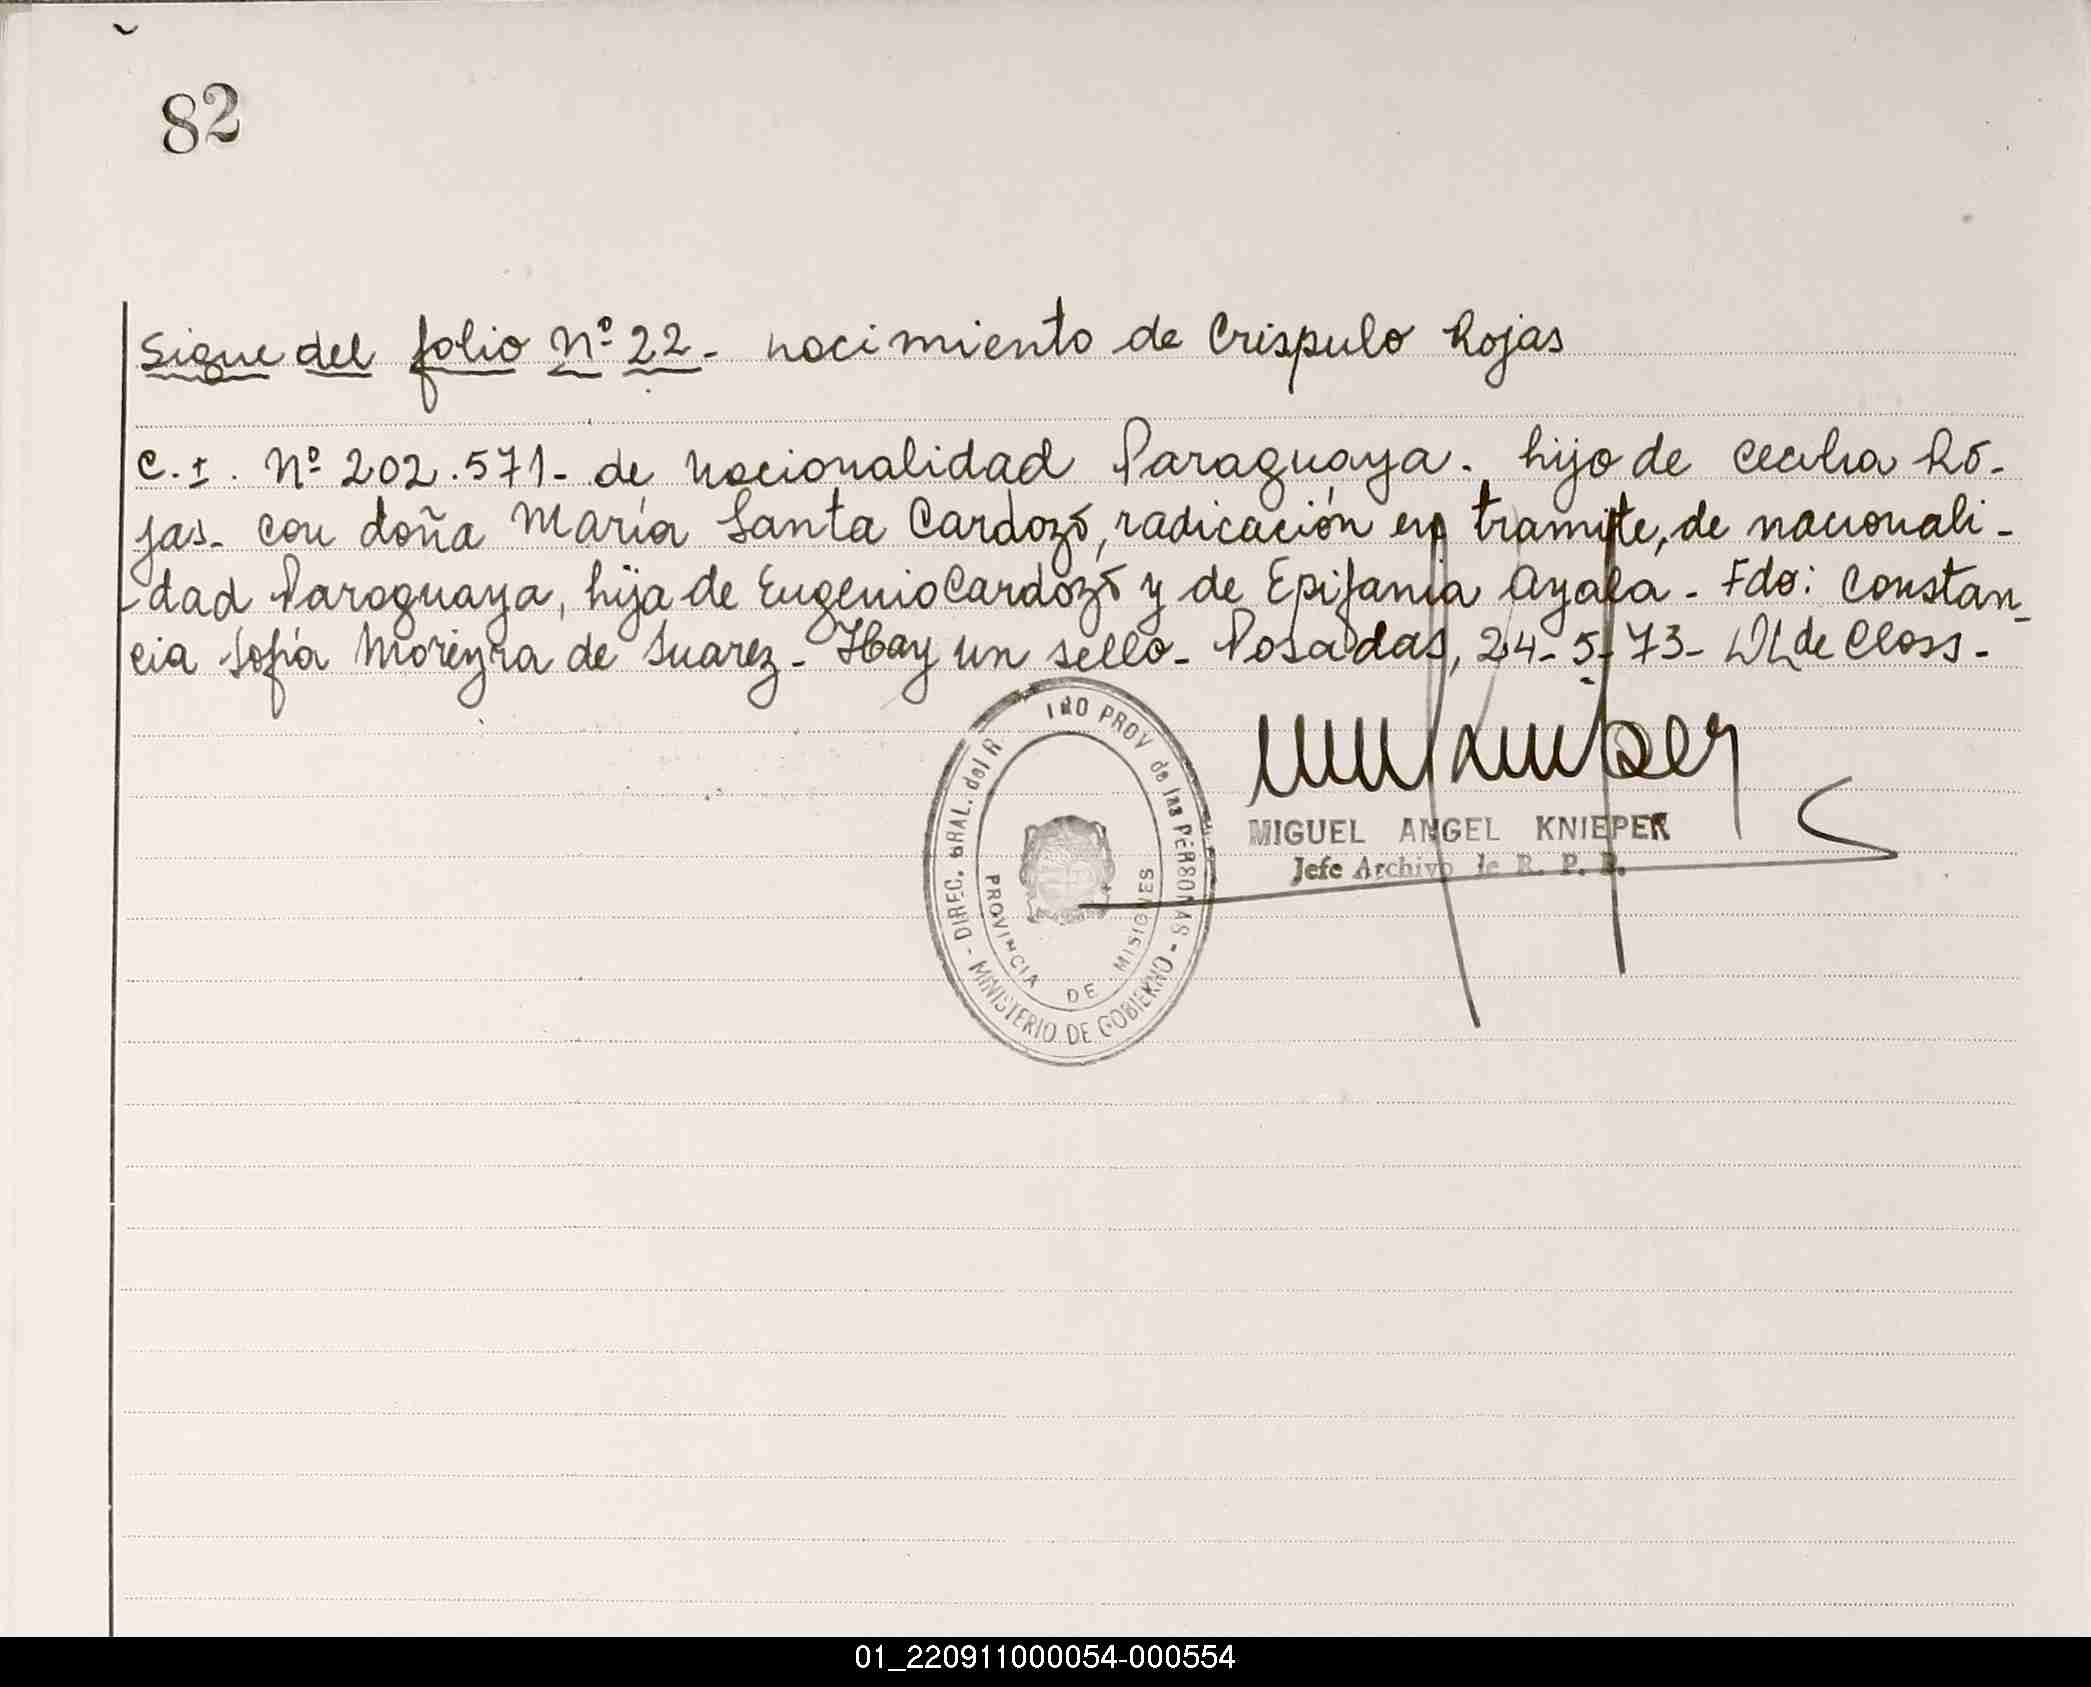 82
Sigue del folio Nº 22 - nacimiento de Crispulo Rojas
C.I. Nº 202.571- de nacionalidad Paraguaya. hijo de Cecilia Ro-
jas- con doña María Santa Cardozo, radicación en tramite, de nacionali-
-dad Paraguaya, hija de Eugenio Cardozo y de Epifania Ayala - Fdo: Constan-
cia Sofia Moreyra de Suarez - Hay un sello - Posadas, 24-5-73- de Closs -
MIGUEL ANGEL KNIEPER
Jefe Archivo de R. P. P.
DIREC. GRAL. del R PROV de las PERSONAS - MINISTERIO DE GOBIERNO -
PROVINCIA DE MISIONES
01_220911000054-000554